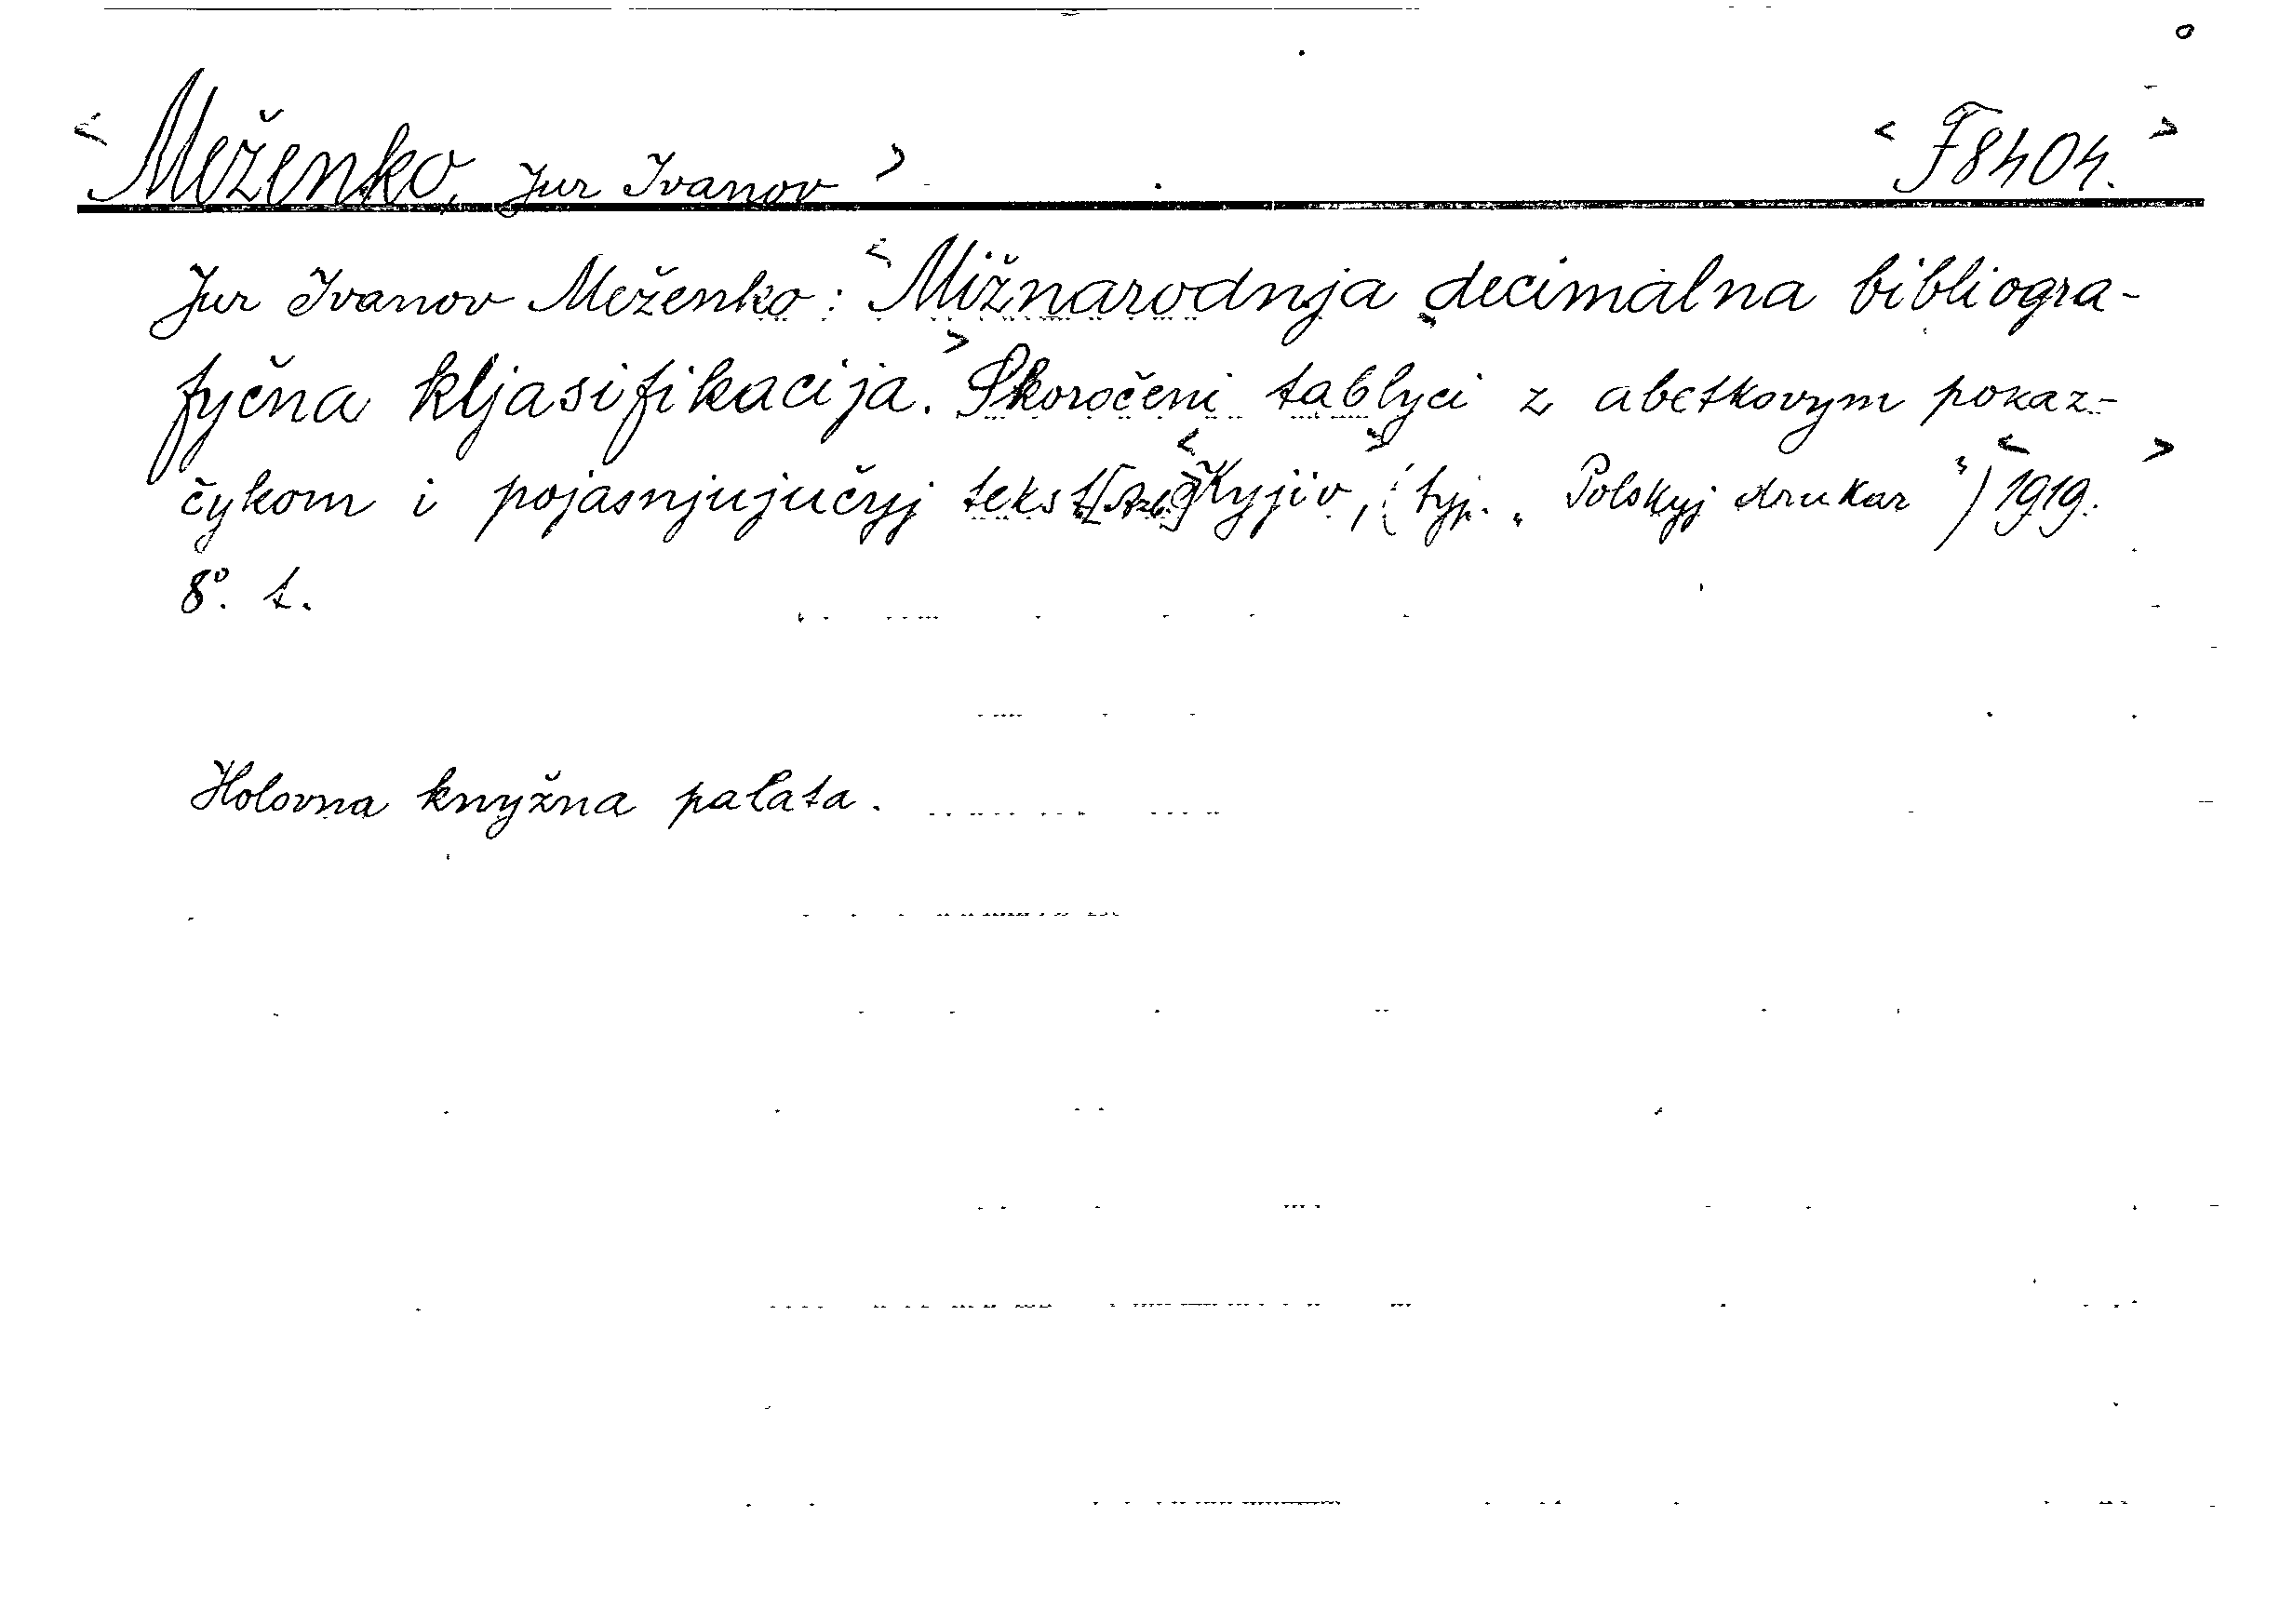 < Meženko, Jur Ivanov > < F8404. >
Jur Ivanov Meženko: < Mižnarodnja decimalna bibliogra-
fyčna kljasifikacija. > Skoročeni tablyci z abetkovym pokaz-
čykom i pojasnjujučyj tekst < Kyjiv, > (typ. „Polskyj drukar") < 1919. >
8°. t.
Holovna knyžna palata.